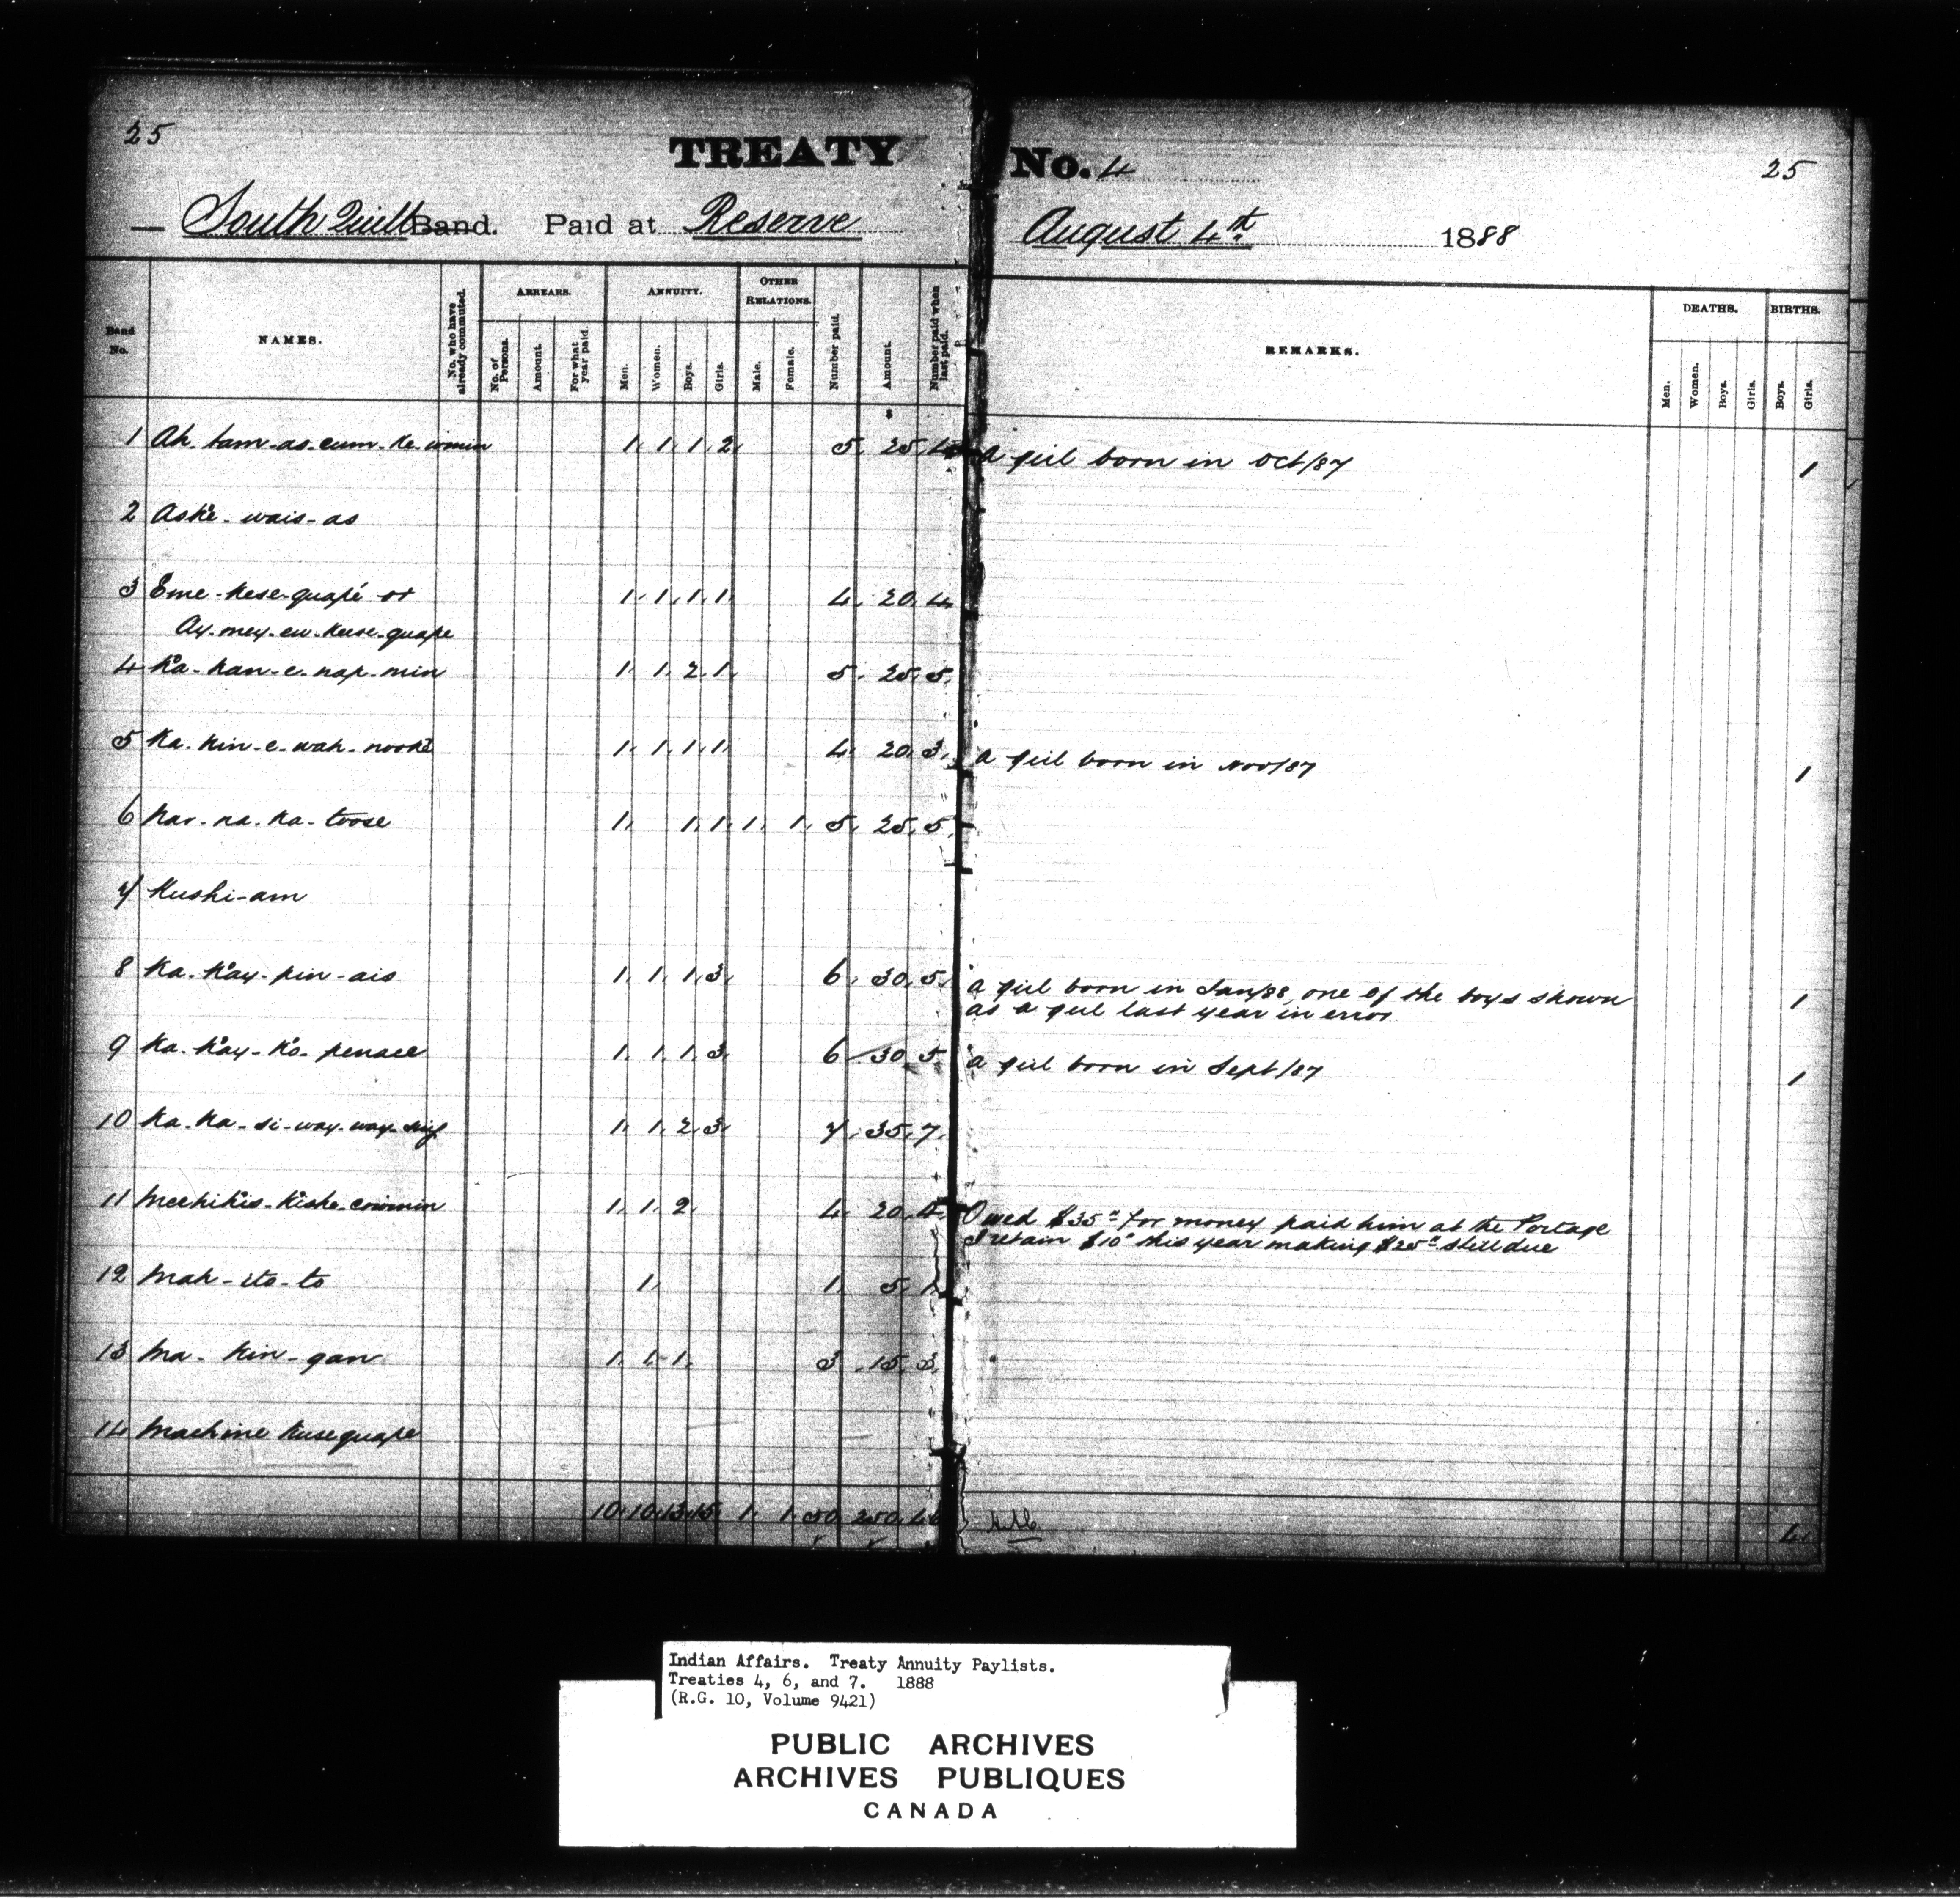 25
TREATY No. 4
25
South Quill Band. Paid at Reserve August 4th 1888
Band No.
NAMES.
No. who have already commuted.
ARREARS.
No. of Persons.
Amount.
For what year paid.
ANNUITY.
Men.
Women.
Boys.
Girls.
OTHER RELATIONS.
Male.
Female.
Number paid.
Amount.
Number paid when last paid.
REMARKS.
DEATHS.
Men.
Women.
Boys.
Girls.
BIRTHS.
Boys.
Girls.
1 Ah-tam-as-cum-ke-wmin 1 1 1 2 5 25 4 a girl born in Oct/87 1
2 Aske-wais-as
3 Eme-kese-quape or 1 1 1 1 4 20 4
Ay-mey-eu-keese-quape
4 Ka-kan-e-nap-min 1 1 2 1 5 25 5
5 Ka-kin-e-wah-nooke 1 1 1 1 4 20 3 a girl born in Nov/87 1
6 Kar-na-ka-toose 1 1 1 1 1 5 25 5
7 Kushi-am
8 Ka-Kay-pin-ais 1 1 1 3 6 30 5 a girl born in Jan/88, one of the boys shown 1
as a girl last year in error
9 Ka-Kay-Ko-penace 1 1 1 3 6 30 5 a girl born in Sept/87 1
10 Ka-Ka-si-way-way 1 1 2 3 7 35 7
11 Mechikis-Kishe-cowmin 1 1 2 4 20 4 Owed $35 for money paid him at the Portage
I retain $10 this year making $25 still due
12 Mah-ito-to 1 1 5 1
13 Ma-kin-gan 1 1 1 3 15 3
14 Machine Kusequape
10 10 13 15 1 1 50 250 46 4
Indian Affairs. Treaty Annuity Paylists.
Treaties 4, 6, and 7. 1888
(R.G. 10, Volume 9421)
PUBLIC ARCHIVES
ARCHIVES PUBLIQUES
CANADA